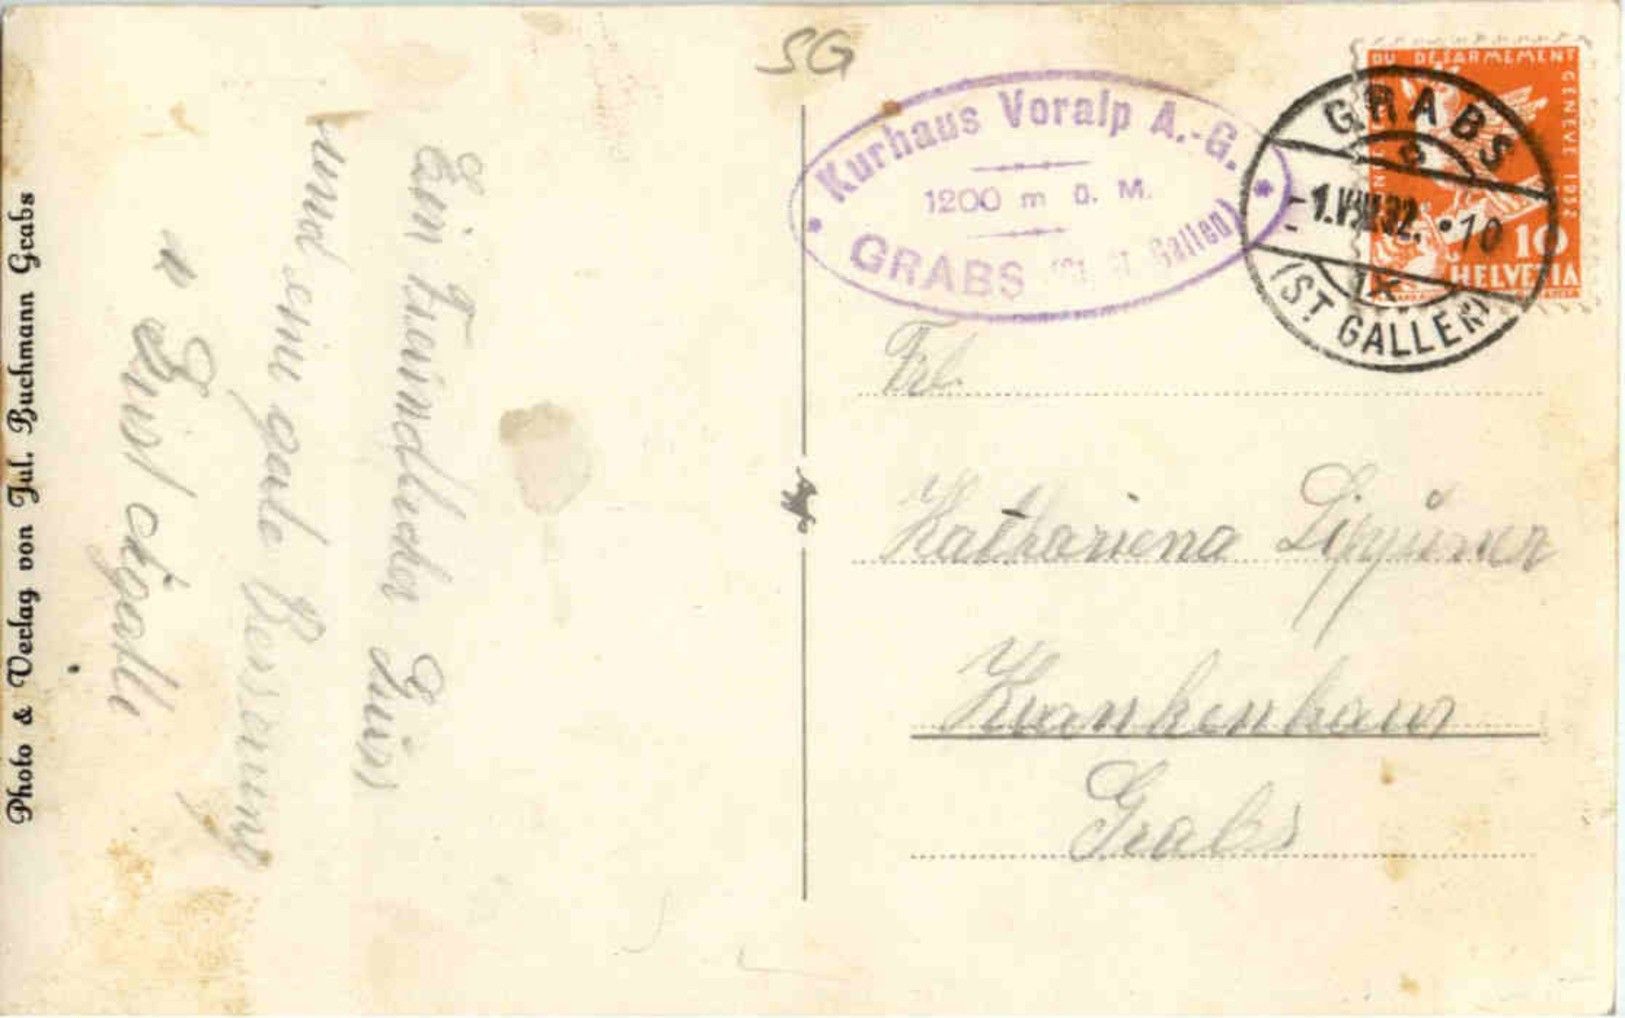 SG
Kurhaus Voralp A.-G.
1200 m ü. M.
GRABS St. Gallen)
GRABS
-1.VIII.32.·10
(ST GALLEN)
DU DÉSARMEMENT GENÈVE 1932
10
HELVETIA
Frl.
Kathariena Lippuner
Krankenhaus
Grabs
Ein Freundlicher Gruss
und eine gute Besserung
Photo & Verlag von Jul. Buchmann Grabs